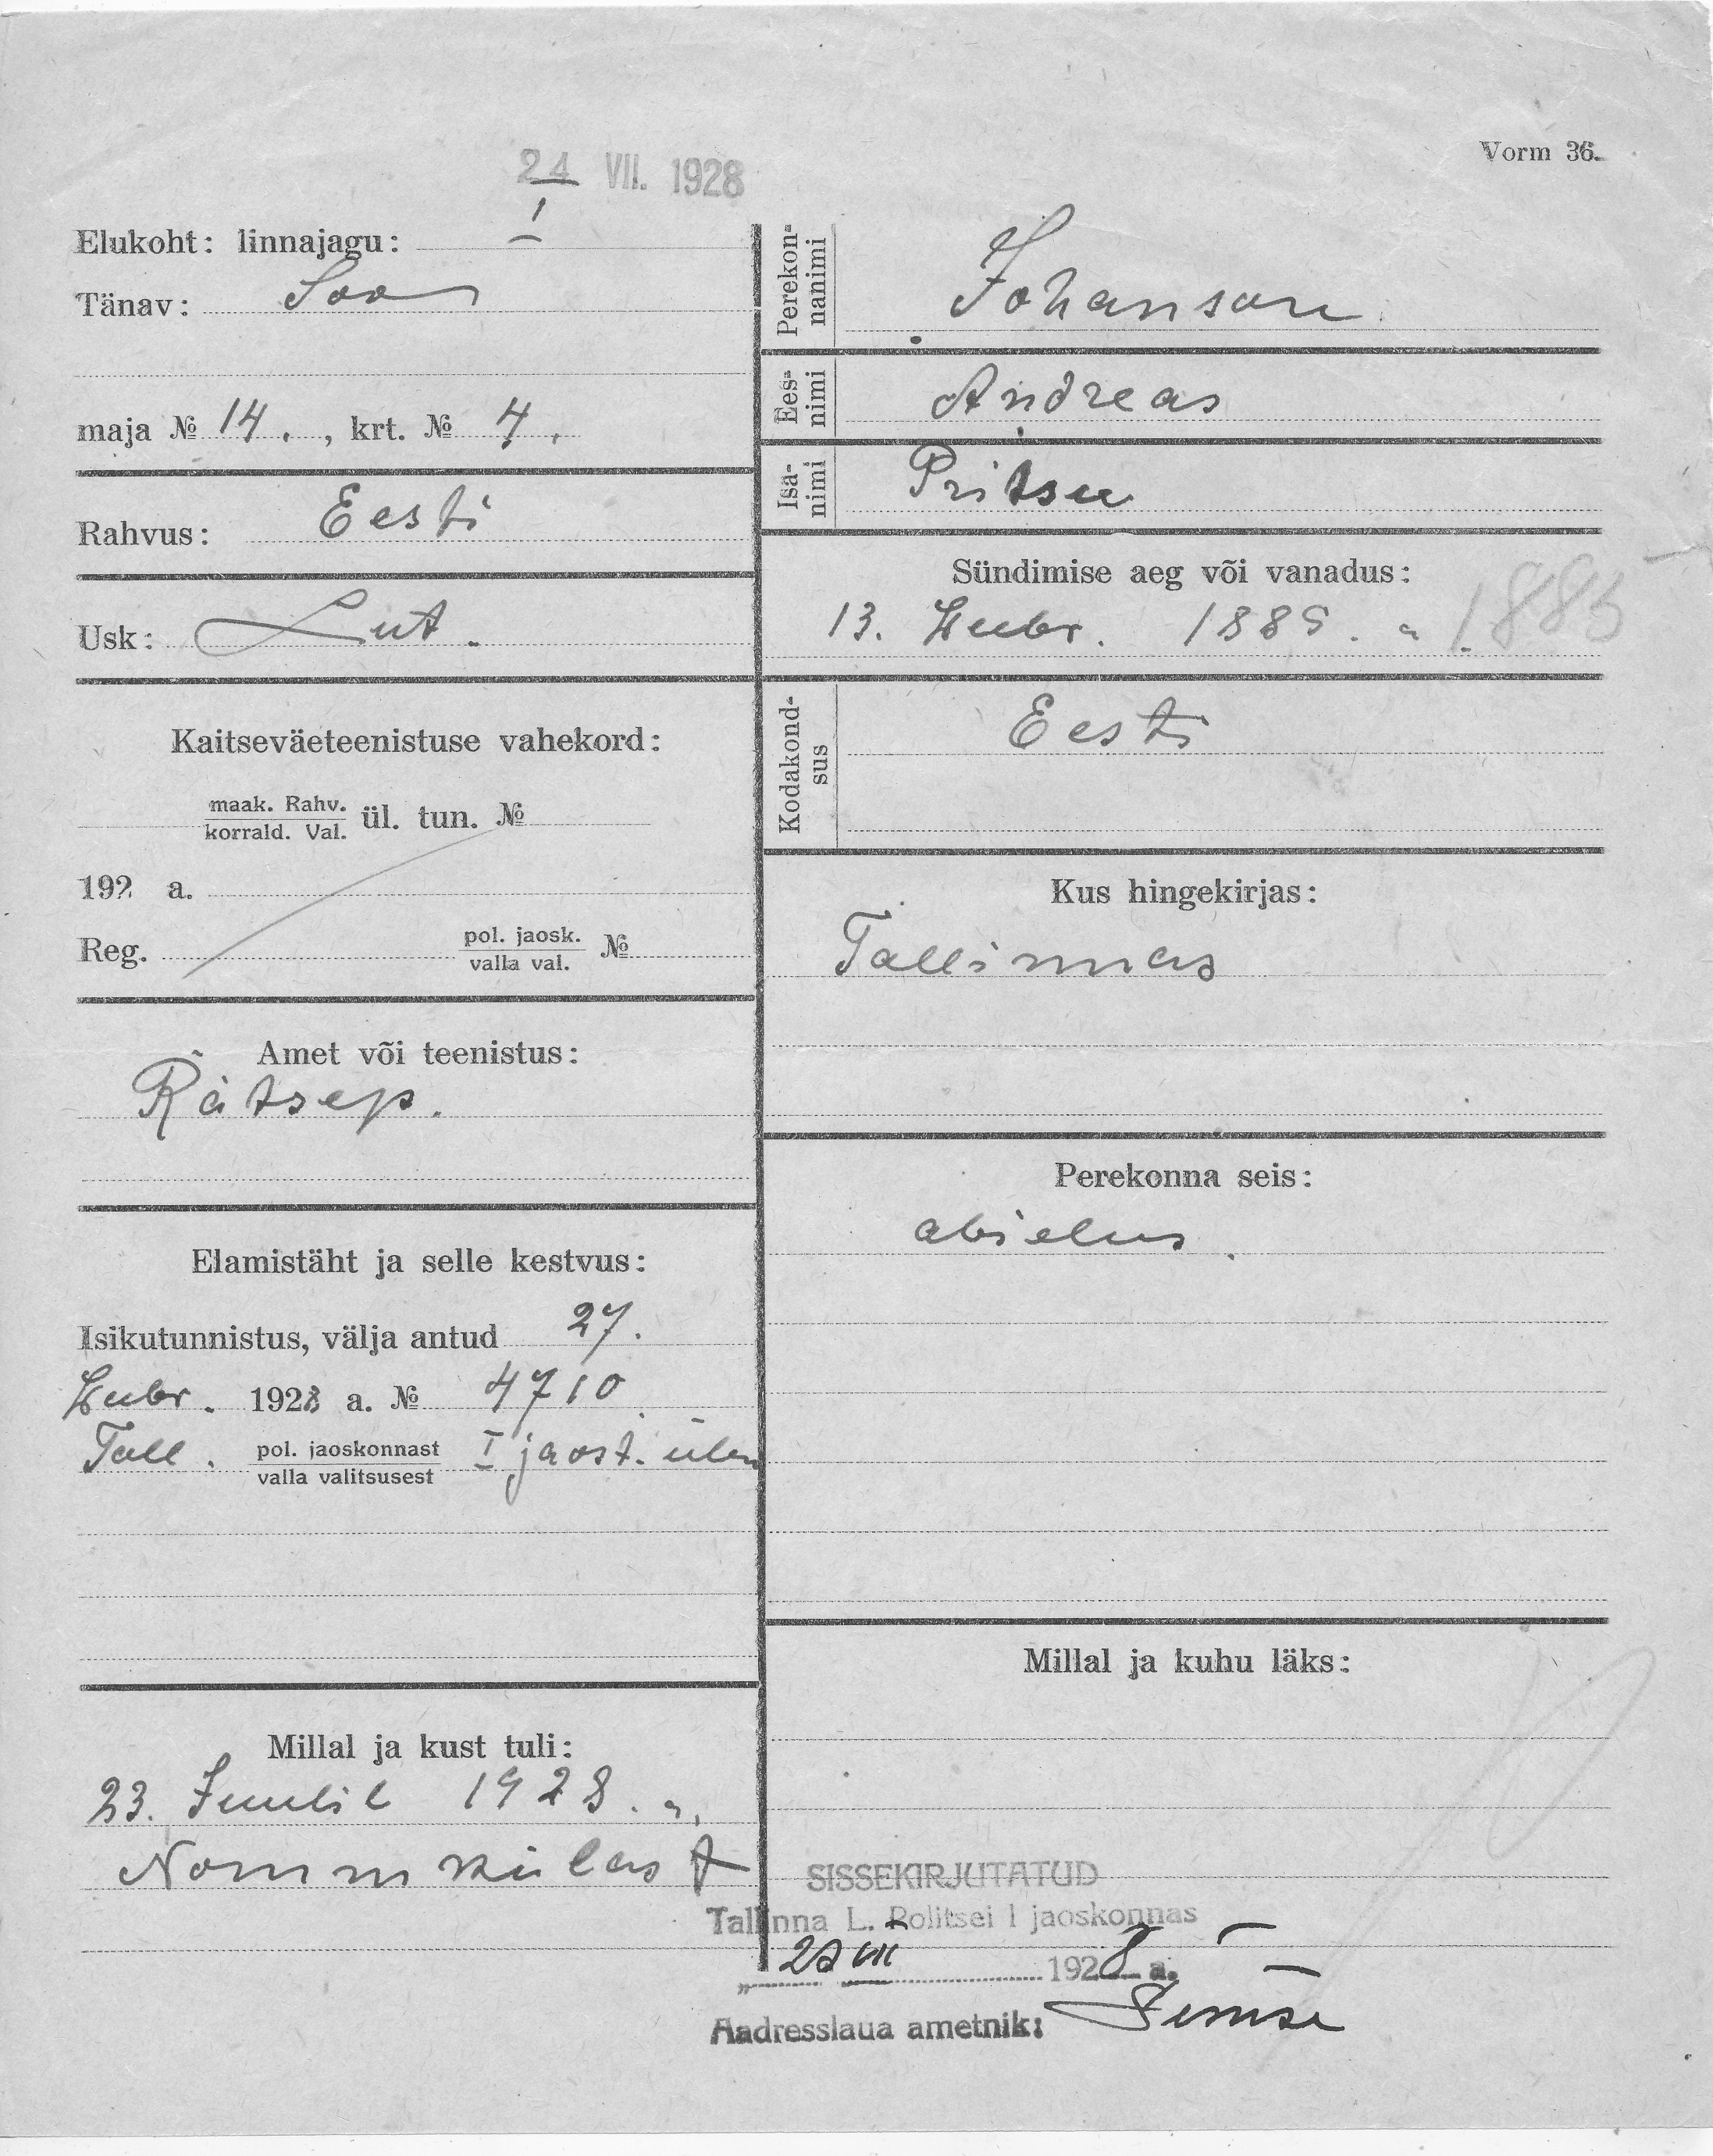 Vorm 36.
24 VII. 1928
Elukoht: linnajagu: I
Tänav: Soo
maja № 14., krt. № 4.
Rahvus: Eesti
Usk: Lut.
Kaitseväeteenistuse vahekord:
maak. Rahv.
korrald. Val. ül. tun. №
192 a.
Reg. pol. jaosk. №
valla val.
Amet või teenistus:
Rätsep.
Elamistäht ja selle kestvus:
Isikutunnistus, välja antud 27.
Veebr. 1928 a. № 4710
Tall. pol. jaoskonnast I jaosk. ülem
valla valitsusest
Millal ja kust tuli:
23. Juulil 1928. a.
Nommkülast
Perekonnanimi Johanson
Eesnimi Andreas
Isanimi Pritsu
Sündimise aeg või vanadus:
13. Veebr. 1885. a 1885
Kodakondsus Eesti
Kus hingekirjas:
Tallinnas
Perekonna seis:
abielus.
Millal ja kuhu läks:
SISSEKIRJUTATUD
Tallinna L. Politsei I jaoskonnas
VII 1928 a.
Aadresslaua ametnik: